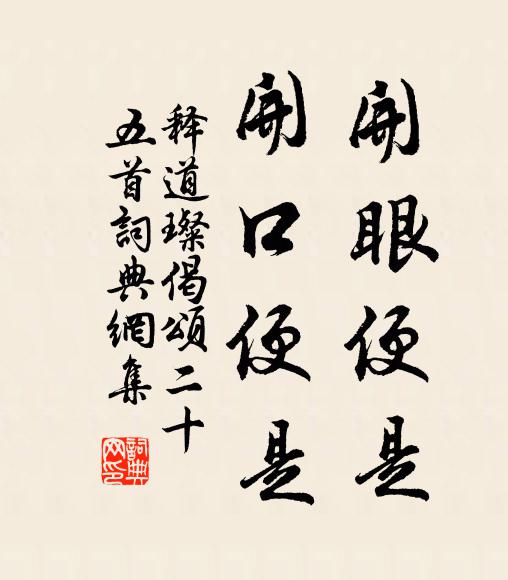 開眼便是
開口便是
释道璨偈頌二十
五首詞典網集
詞典
网印